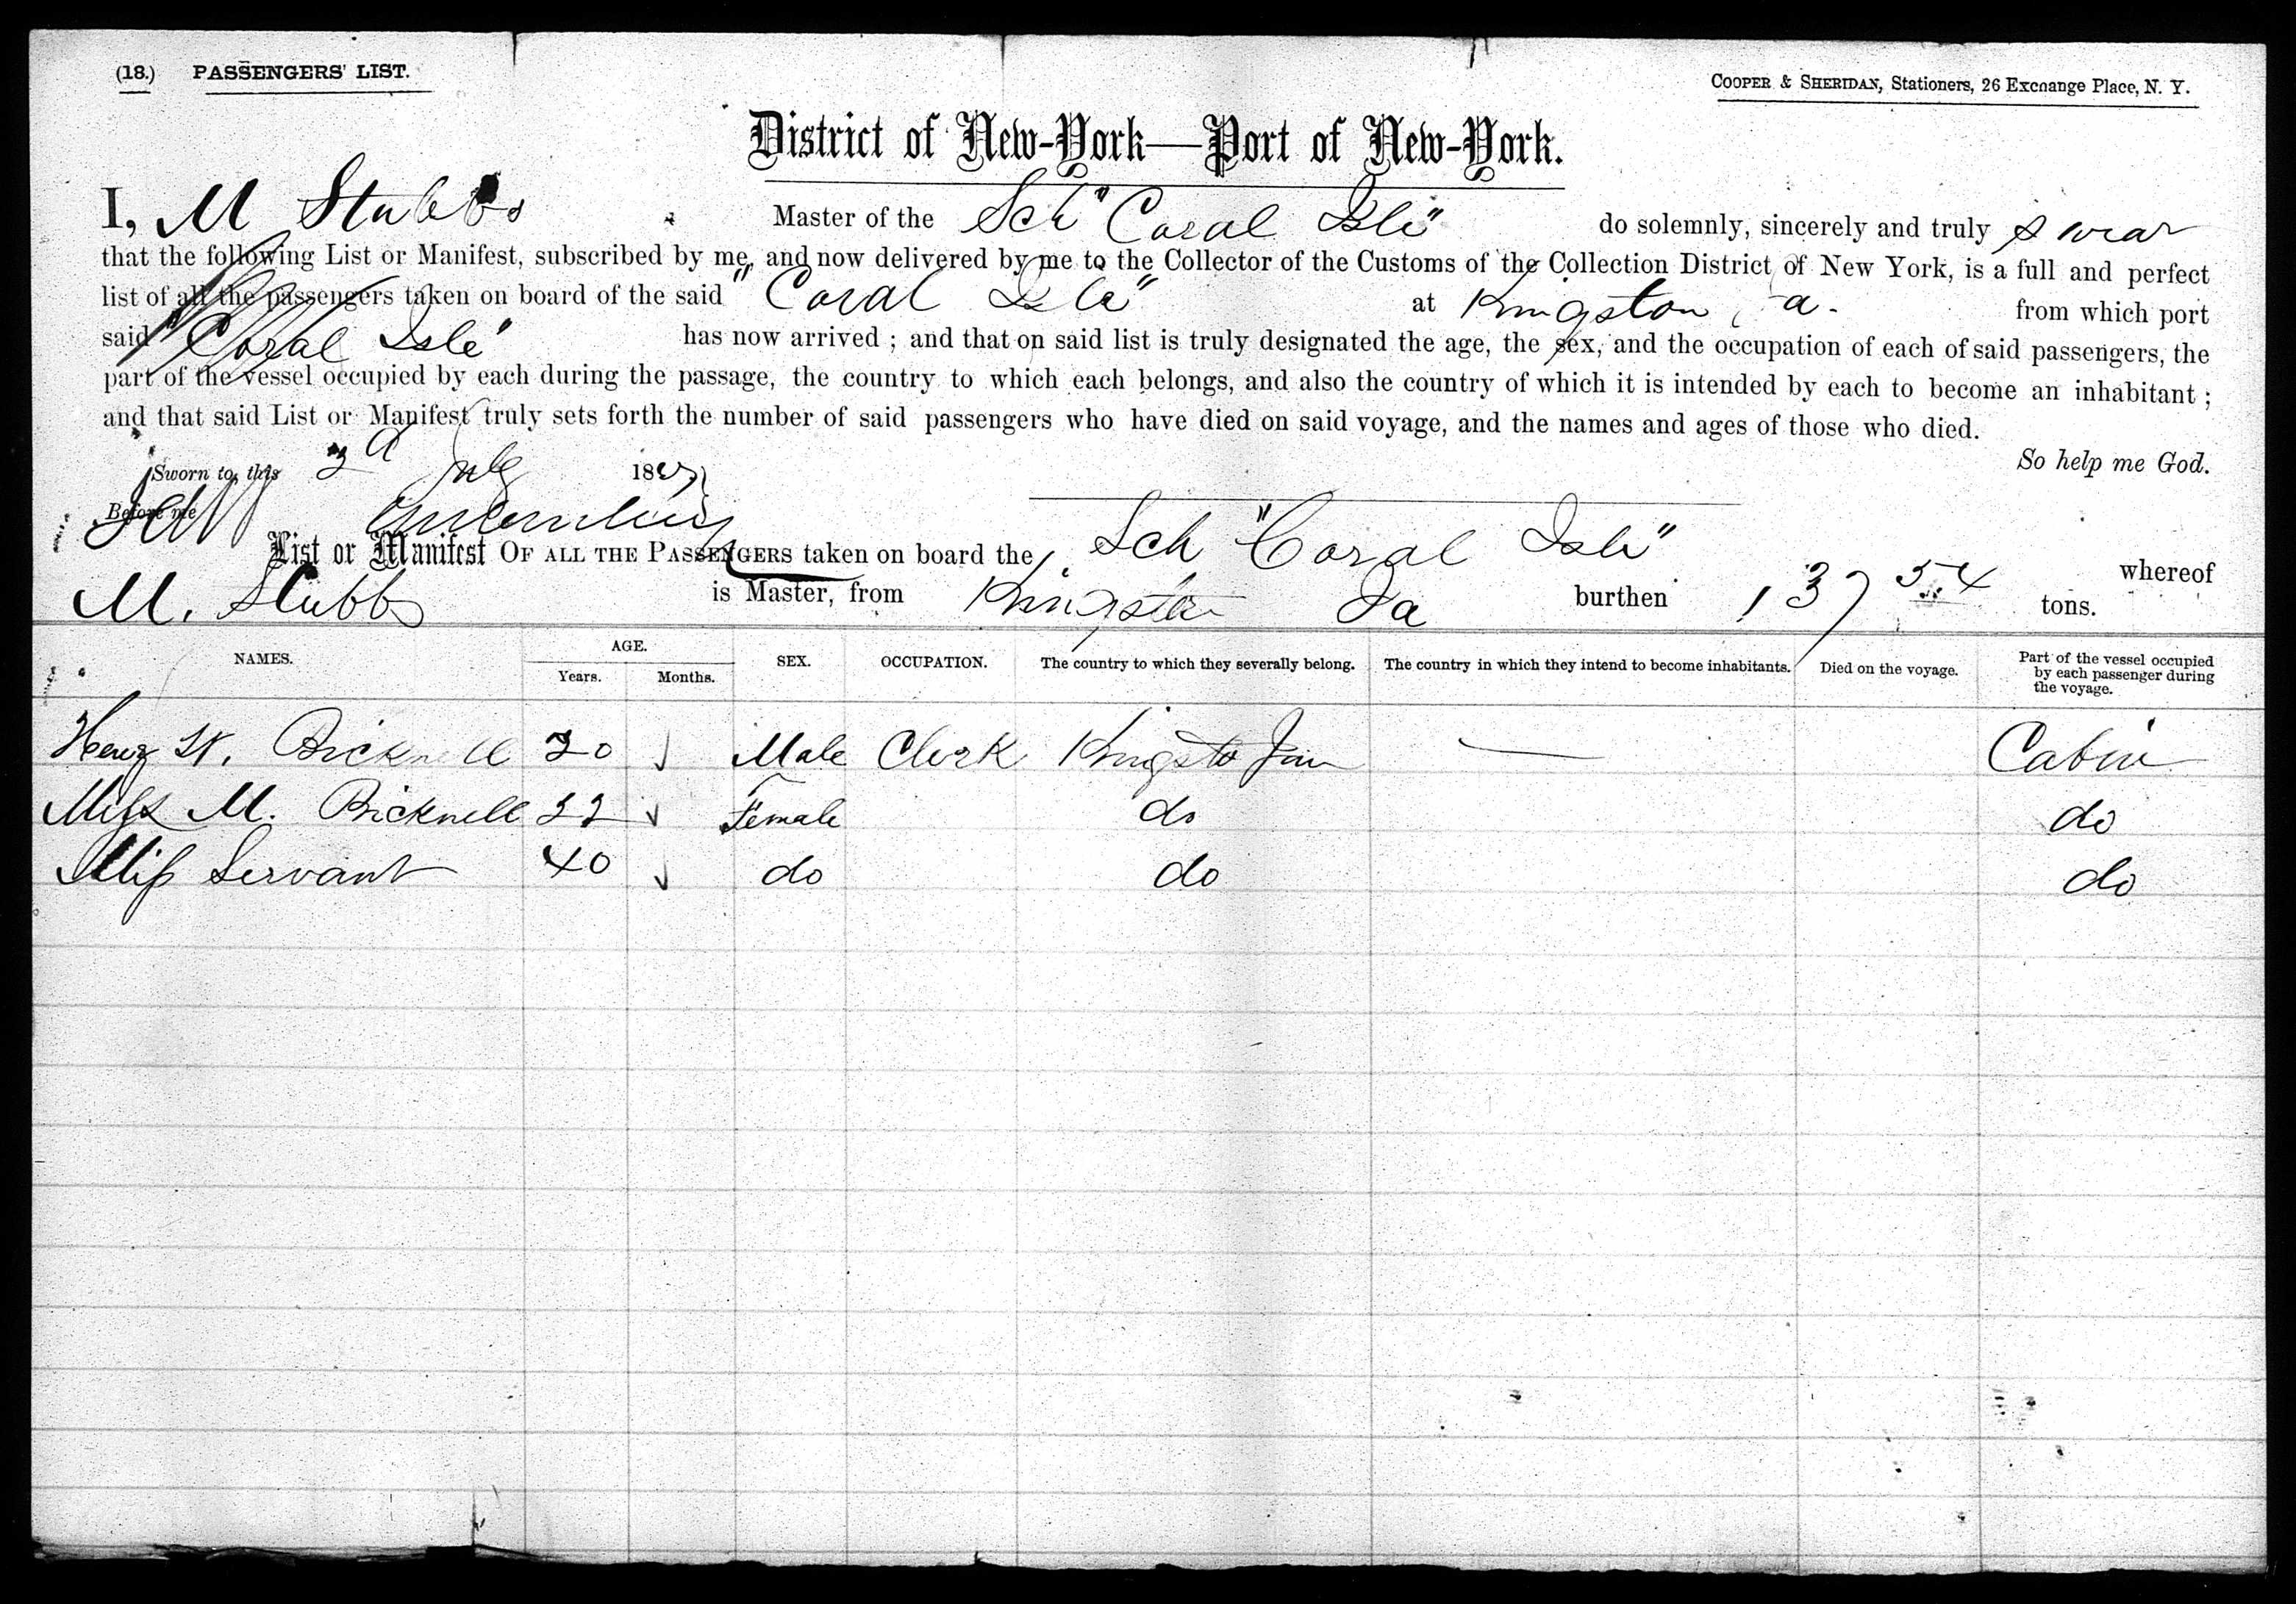 (18.) PASSENGERS' LIST.
COOPER & SHERIDAN, Stationers, 26 Exchange Place, N. Y.
District of New-York—Port of New-York.
I, M Stubbs Master of the Sch "Coral Isle" do solemnly, sincerely and truly swear
that the following List or Manifest, subscribed by me, and now delivered by me to the Collector of the Customs of the Collection District of New York, is a full and perfect
list of all the passengers taken on board of the said "Coral Isle" at Kingston, Ja. from which port
said "Coral Isle" has now arrived ; and that on said list is truly designated the age, the sex, and the occupation of each of said passengers, the
part of the vessel occupied by each during the passage, the country to which each belongs, and also the country of which it is intended by each to become an inhabitant ;
and that said List or Manifest truly sets forth the number of said passengers who have died on said voyage, and the names and ages of those who died.
So help me God.
Sworn to, this 3d July 18
Before me
List or Manifest OF ALL THE PASSENGERS taken on board the Sch "Coral Isle" whereof
M. Stubbs is Master, from Kingston Ja burthen 137 54 tons.
NAMES. AGE. Years. Months. SEX. OCCUPATION. The country to which they severally belong. The country in which they intend to become inhabitants. Died on the voyage. Part of the vessel occupied by each passenger during the voyage.
Henry W. Bicknell 20 Male Clerk Kingsto Jam — Cabin
Miss M. Bicknell 22 Female do do
Miss Servant 40 do do do